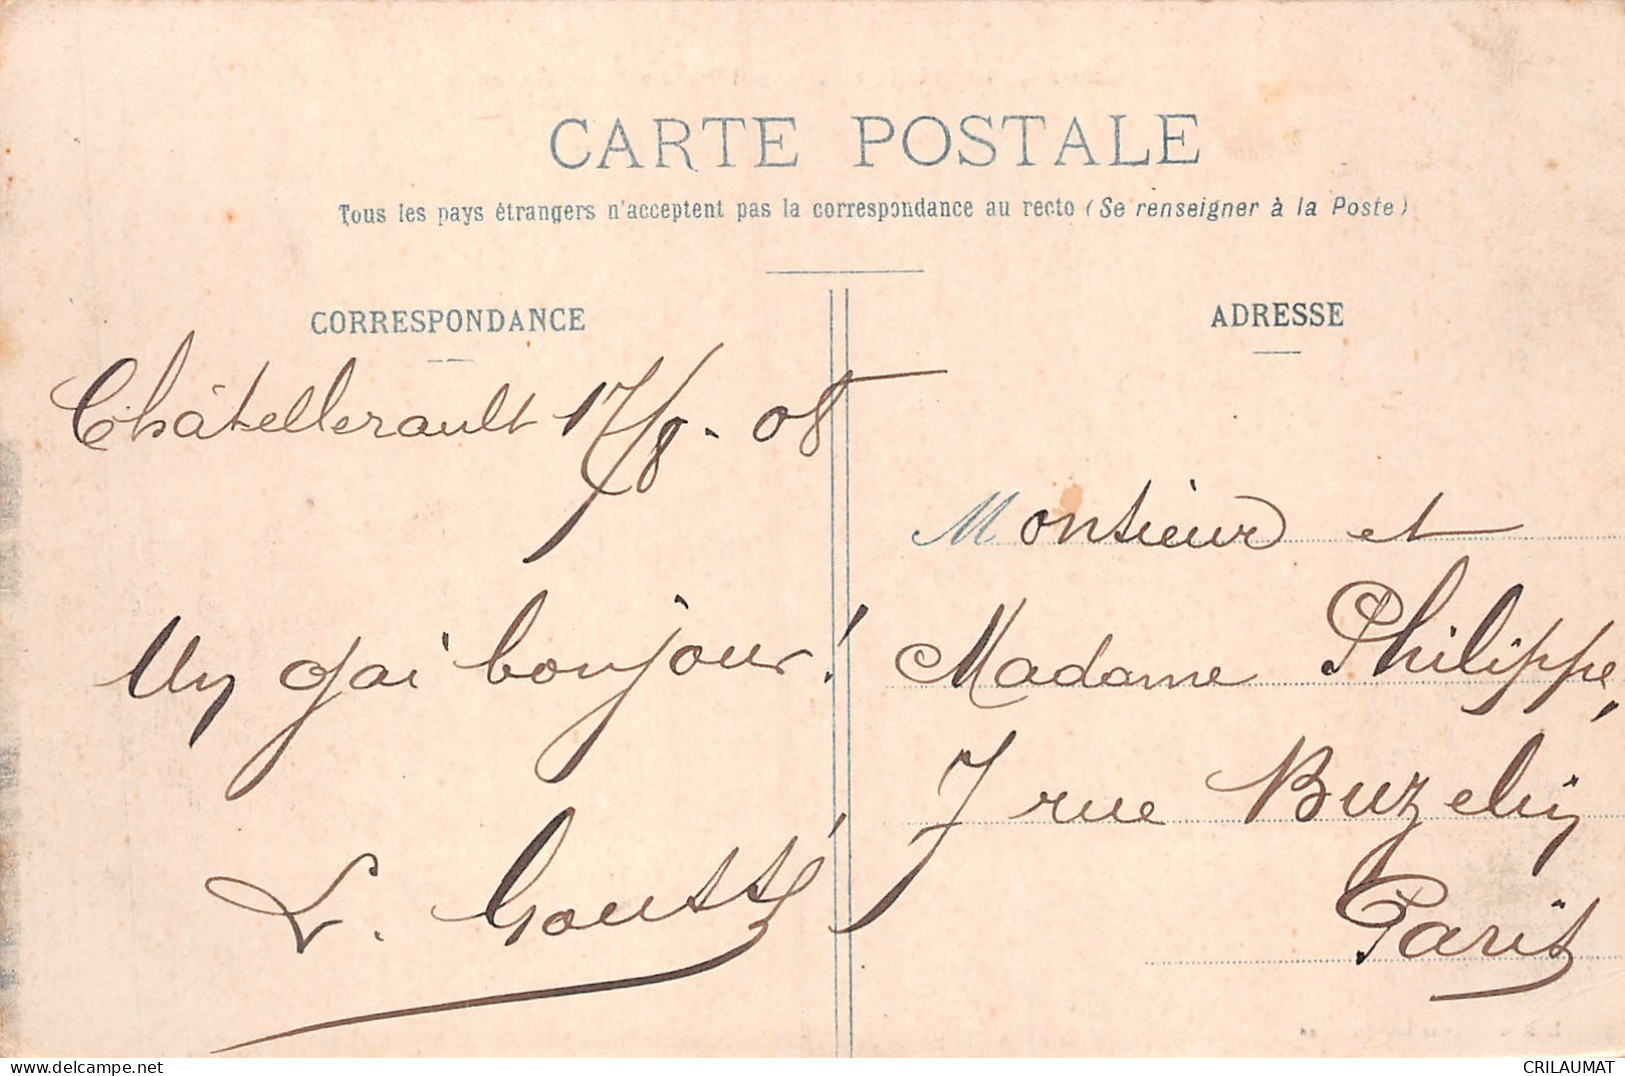 CARTE POSTALE
Tous les pays étrangers n'acceptent pas la correspondance au recto (Se renseigner à la Poste)
CORRESPONDANCE
Châtellerault 17/8 - 08
Un gai bonjour!
L.
ADRESSE
Monsieur et
Madame Philippe,
7 rue Buzelin
Paris
CRILAUMAT